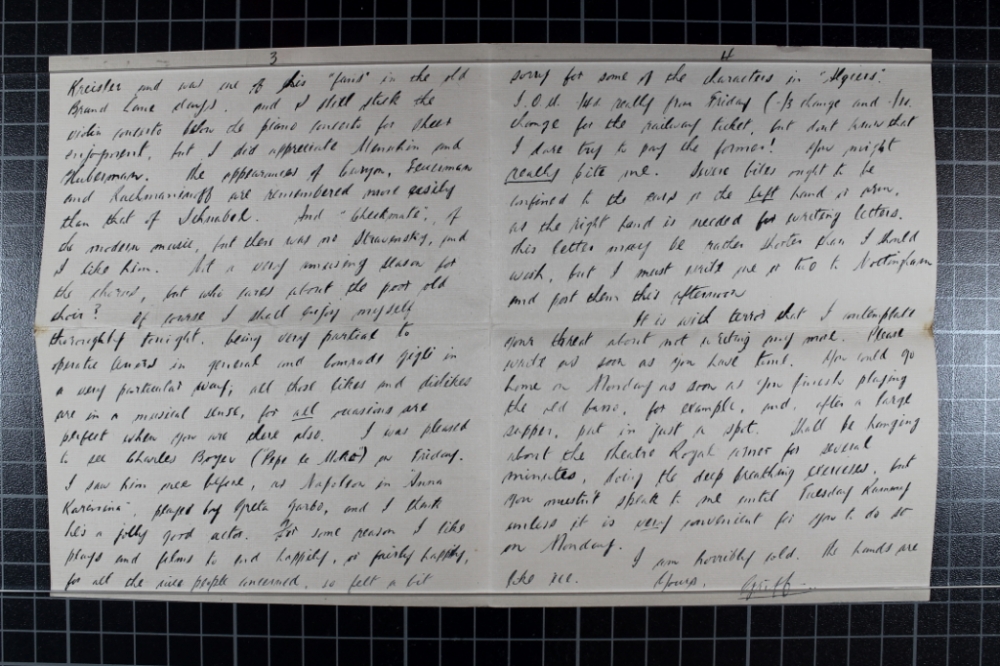 3
Kreisler and was one of his "fans" in the old
Brand Lane days. And I still stick the
violin concerto below the piano concerto for sheer
enjoyment, but I did appreciate Menuhin and
Hubermann. The appearances of Feuermann
and Rachmaninoff are remembered more easily
than that of Schnabel. And "Checkmate", of
the modern music, but there was no Stravinsky, and
I like him. Not a very amusing season for
the chorus, but who cares about the poor old
choir? Of course I shall enjoy myself
thoroughly tonight. being very partial to
operatic tenors in general and Comrade Gigli in
a very particular way; all those likes and dislikes
are in a musical sense, for all occasions are
perfect when you are there also. I was pleased
to see Charles Boyer (Pepe le Moko) on Friday.
I saw him once before, as Napoleon in "Anna
Karenina", played by Greta Garbo, and I think
he's a jolly good actor. For some reason I like
plays and films to end happily, or fairly happily,
for all the nice people concerned, so felt a bit
4
sorry for some of the characters in "Algiers."
I.O.U. really from Friday ( change and
change for the railway ticket, but don't know that
I dare try to pay the former! You might
really bite me. Severe bites ought to be
confined to the ears or the left hand or arm,
as the right hand is needed for writing letters.
This letter may be rather shorter than I should
wish, but I must write one or two to Nottingham
and post them this afternoon
It is with terror that I contemplate
your threat about not writing any more. Please
write as soon as you have time. You could go
home on Monday as soon as you finish playing
the old piano, for example, and, after a large
supper, put in just a spot. Shall be hanging
about the Theatre Royal corner for several
minutes, doing the deep breathing exercises, but
you mustn't speak to me until Tuesday
unless it is very convenient for you to do so
on Monday.
I am horribly cold. The hands are
like ice.
Yours,
Griff